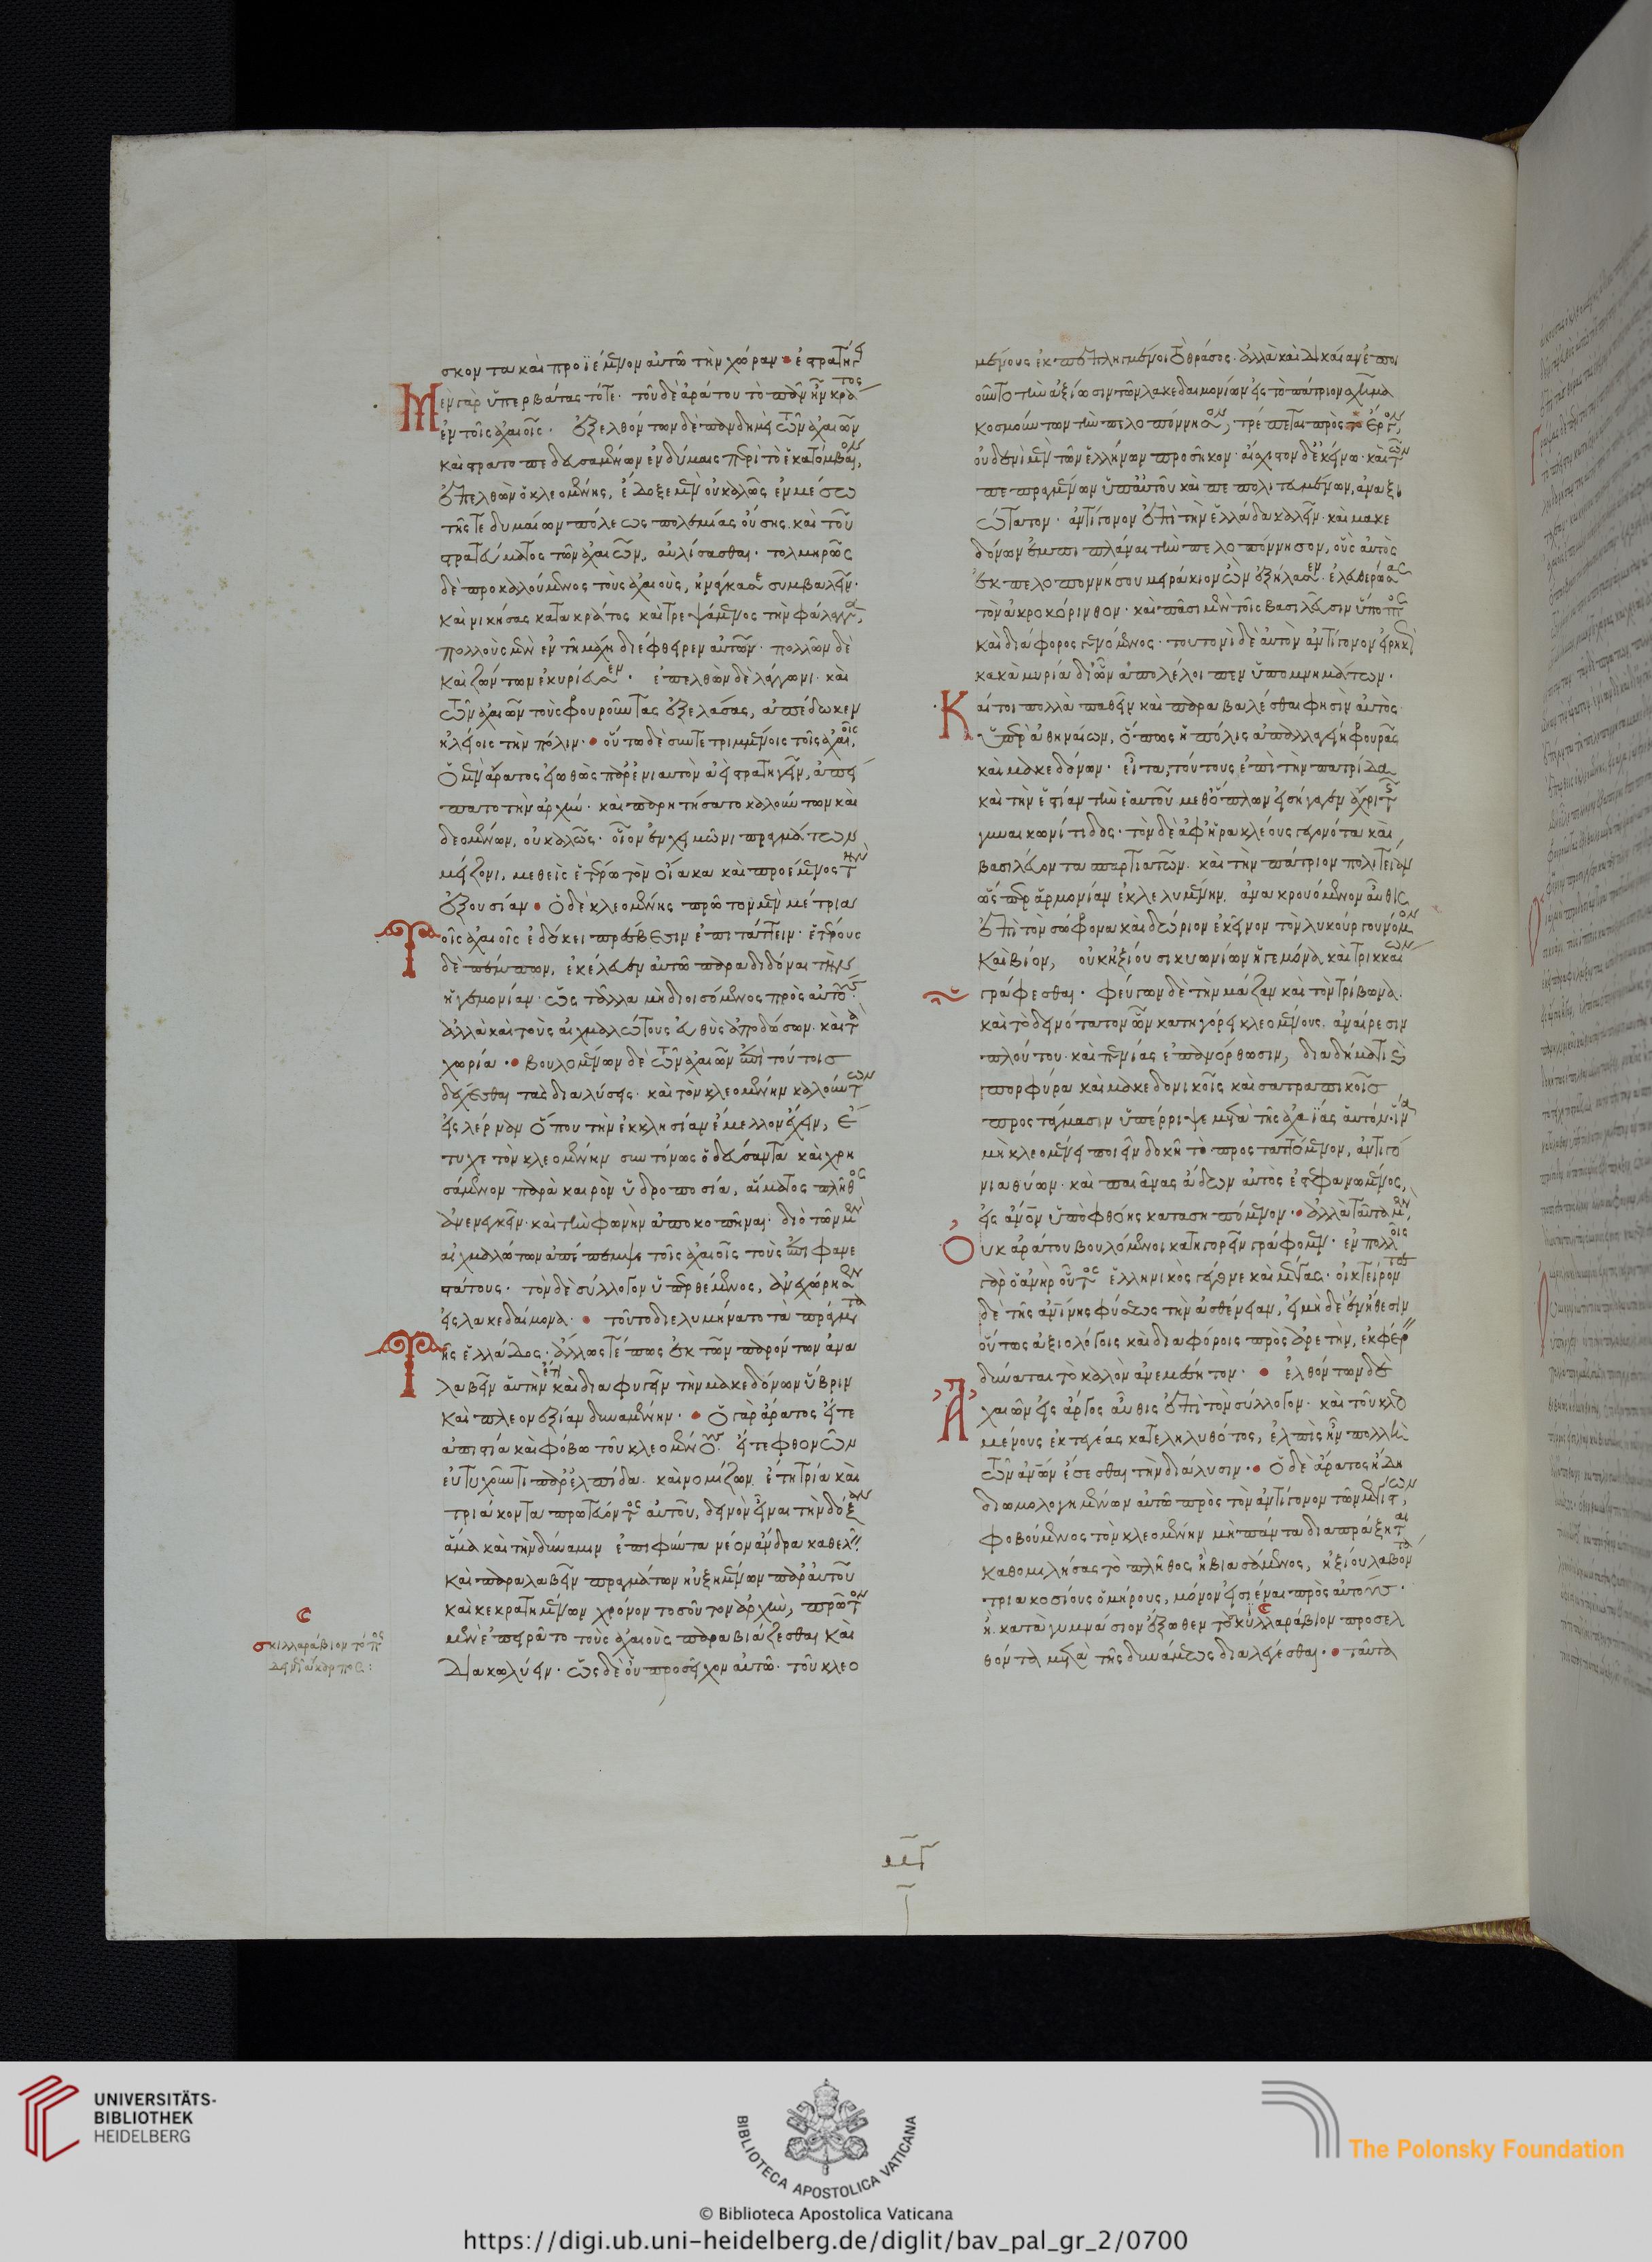 σκοντα καὶ προϊέμενον αὐτῶ τὴν χώραν· ἐστρατήγει
Μὲν γὰρ ὑπερβάτας τότε· τοῦ δὲ ἀράτου τὸ πᾶν ἦν κράτος
ἐν τοῖς ἀχαιοῖς· ἐξελθόντων δὲ πανδημεὶ τῶν ἀχαιῶν
καὶ στρατοπεδευσαμένων ἐν δύμαις περὶ τὸ ἑκατόμβαιον,
ἐπελθὼν ὁ κλεομένης, ἔδοξε μὲν οὐ καλῶς ἐν μέσω
τῆς τε δυμαίων πόλεως πολεμίας οὔσης καὶ τοῦ
στρατεύματος τῶν ἀχαιῶν, αὐλίσασθαι· τολμηρῶς
δὲ προκαλούμενος τοὺς ἀχαιοὺς, ἠνάγκασε συμβαλεῖν·
καὶ νικήσας κατακράτος καὶ τρεψάμενος τὴν φάλαγγα,
πολλοὺς μὲν ἐν τῆ μάχη διέφθειρεν αὐτῶν· πολλῶν δὲ
καὶ ζώντων ἐκυρίευσεν· ἐπελθὼν δὲ λάγγωνι καὶ
τῶν ἀχαιῶν τοὺς φρουροῦντας ἐξελάσας, ἀπέδωκεν
ἠλείοις τὴν πόλιν· οὕτω δὲ συντετριμμένοις τοῖς ἀχαιοῖς,
ὁ μὲν ἄρατος εἰωθὼς παρ' ἐνιαυτὸν ἀεὶ στρατηγεῖν, ἀπεί
πατο τὴν ἀρχὴν· καὶ παρητήσατο καλούντων καὶ
δεομένων, οὐ καλῶς· οἷον ἐν χειμῶνι πραγμάτων
μείζονι, μεθεὶς ἑτέρω τὸν οἴακα καὶ προέμενος τὴν
ἐξουσίαν· ὁ δὲ κλεομένης πρῶτον μὲν μέτρια
Τοῖς ἀχαιοῖς ἐδόκει πρέσβεσιν ἐπιτάττειν· ἑτέρους
δὲ πέμπων, ἐκέλευεν αὐτῶ παραδιδόναι τὴν
ἡγεμονίαν· ὡς τἄλλα μὴ διοισόμενος πρὸς αὐτοὺς·
ἀλλὰ καὶ τοὺς αἰχμαλώτους εὐθὺς ἀποδώσων· καὶ τὰ
χωρία· βουλομένων δὲ τῶν ἀχαιῶν ἐπὶ τούτοις
δέχεσθαι τὰς διαλύσεις· καὶ τὸν κλεομένην καλούντων
εἰς λέρναν ὅπου τὴν ἐκκλησίαν ἔμελλον ἔχειν, ἔ
τυχε τὸν κλεομένην συντόνως ὁδεύσαντα καὶ χρη
σάμενον παρὰ καιρὸν ὑδροποσία, αἵματος πλῆθος
ἀνενεγκεῖν· καὶ τὴν φωνὴν ἀποκοπῆναι· διὸ τῶν μὲν
αἰχμαλώτων ἀπέπεμψε τοῖς ἀχαιοῖς τοὺς ἐπιφανε
στάτους· τὸν δὲ σύλλογον ὑπερθέμενος, ἀνεχώρησεν
εἰς λακεδαίμονα· τοῦτο διελυμήνατο τὰ πράγματα
Τῆς ἑλλάδος· ἄλλως τέ πως ἐκ τῶν παρόντων ἀνα
λαβεῖν αὑτὴν ἔτι καὶ διαφυγεῖν τὴν μακεδόνων ὕβριν
καὶ πλεονεξίαν δυναμένην· ὁ γὰρ ἄρατος εἴτε
ἀπιστία καὶ φόβω τοῦ κλεομένους· εἴτε φθονῶν
εὐτυχοῦντι παρ' ἐλπίδα· καὶ νομίζων ἔτη τρία καὶ
τριάκοντα πρωτεύοντος αὐτοῦ, δεινὸν εἶναι τὴν δόξαν
ἅμα καὶ τὴν δύναμιν ἐπιφύντα νέον ἄνδρα καθελεῖν
καὶ παραλαβεῖν πραγμάτων ηὐξημένων παρ' αὐτοῦ
καὶ κεκρατημένων χρόνον τοσοῦτον ἀρχὴν, πρῶτον
μὲν ἐπειρᾶτο τοὺς ἀχαιοὺς παραβιάζεσθαι καὶ
διακωλύειν· ὡς δὲ οὐ προσεῖχον αὐτῶ· τοῦ κλεο
σκιλλαράβιον τόπος
μένους ἐκπεπληγμένοι τὸ θράσος· ἀλλὰ καὶ δικαίαν ἐποι
οῦντο τὴν ἀξίωσιν τῶν λακεδαιμονίων εἰς τὸ πάτριον σχῆμα
κοσμούντων τὴν πελοπόννησον, τρέπεται πρὸς ἔργον,
οὐδενὶ μὲν τῶν ἑλλήνων προσῆκον· αἴσχιστον δὲ ἐκείνω· καὶ τῶν
πεπραγμένων ὑπ' αὐτοῦ καὶ πεπολιτευμένων, ἀναξι
ώτατον· ἀντίγονον ἐπὶ τὴν ἑλλάδα καλεῖν· καὶ μακε
δόνων ἐμπιπλάναι τὴν πελοπόννησον, οὓς αὐτὸς
ἐκ πελοποννήσου μειράκιον ὢν ἐξήλασεν· ἐλευθερώσας
τὸν ἀκροκόρινθον· καὶ πᾶσι μὲν τοῖς βασιλεῦσιν ὕποπτος
καὶ διάφορος γενόμενος· τουτονὶ δὲ αὐτὸν ἀντίγονον εἰρηκὼς
κακὰ μυρία δι' ὧν ἀπολέλοιπεν ὑπομνημάτων·
Καίτοι πολλὰ παθεῖν καὶ παραβαλέσθαι φησὶν αὐτὸς
ὑπὲρ ἀθηναίων, ὅπως ἡ πόλις ἀπαλλαγείη φρουρᾶς
καὶ μακεδόνων· εἶτα, τούτους ἐπὶ τὴν πατρίδα
καὶ τὴν ἑστίαν τὴν ἑαυτοῦ μεθ' ὅπλων εἰσήγαγεν ἄχρι τῆς
γυναικωνίτιδος· τὸν δὲ ἀφ' ἡρακλέους γεγονότα καὶ
βασιλεύοντα σπαρτιατῶν· καὶ τὴν πάτριον πολιτείαν
ὥσπερ ἁρμονίαν ἐκλελυμένην, ἀνακρουόμενον αὖθις
ἐπὶ τὸν σώφρονα καὶ δώριον ἐκεῖνον τὸν λυκούργου νόμον
καὶ βίον, οὐκ ἠξίου σικυωνίων ἡγεμόνα καὶ τρικκαίων
γράφεσθαι· φεύγων δὲ τὴν μάζαν καὶ τὸν τρίβωνα·
καὶ τὸ δεινότατον ὧν κατηγόρει κλεομένους, ἀναίρεσιν
πλούτου· καὶ πενίας ἐπανόρθωσιν, διαδήματι καὶ
πορφύρα καὶ μακεδονικοῖς καὶ σατραπικοῖς
προστάγμασιν ὑπέρριψε μετὰ τῆς ἀχαΐας αὑτόν· ἵνα
μὴ κλεομένει ποιεῖν δοκῆ τὸ προσταττόμενον, ἀντιγό
νια θύων· καὶ παιᾶνας ἄδων αὐτὸς ἐστεφανωμένος,
εἰς ἄνθρωπον ὑπὸ φθόης κατασηπόμενον· ἀλλὰ ταῦτα μὲν,
Οὐκ ἀράτου βουλόμενοι κατηγορεῖν γράφομεν· ἐν πολλοῖς
γὰρ ὁ ἀνὴρ οὗτος ἑλληνικὸς γέγονε καὶ μέγας· οἰκτείροντες
δὲ τῆς ἀνθρωπίνης φύσεως τὴν ἀσθένειαν, εἰ μὴ δὲ ἐν ἤθεσιν
οὕτως ἀξιολόγοις καὶ διαφόροις πρὸς ἀρετὴν, ἐκφέρειν
δύναται τὸ καλὸν ἀνεμέσητον· ἐλθόντων δὲ
Ἀχαιῶν εἰς ἄργος αὖθις ἐπὶ τὸν σύλλογον· καὶ τοῦ κλεο
μένους ἐκ τεγέας κατεληλυθότος, ἐλπὶς ἦν πολλὴ
τῶν ἀνθρώπων ἔσεσθαι τὴν διάλυσιν· ὁ δὲ ἄρατος ἤδη
διωμολογημένων αὐτῶ πρὸς τὸν ἀντίγονον τῶν μεγίστων,
φοβούμενος τὸν κλεομένην μὴ πάντα διαπράξηται
καθομιλήσας τὸ πλῆθος ἢ βιασάμενος, ἠξίου λαβόντα
τριακοσίους ὁμήρους, μόνον εἰσιέναι πρὸς αὐτούς·
ἢ κατὰ γυμνάσιον ἔξωθεν τὸ κυλλαράβιον προσελ
θόντα μετὰ τῆς δυνάμεως διαλέγεσθαι· ταῦτα
UNIVERSITÄTS-
BIBLIOTHEK
HEIDELBERG
BIBLIOTECA APOSTOLICA VATICANA
The Polonsky Foundation
© Biblioteca Apostolica Vaticana
https://digi.ub.uni-heidelberg.de/diglit/bav_pal_gr_2/0700